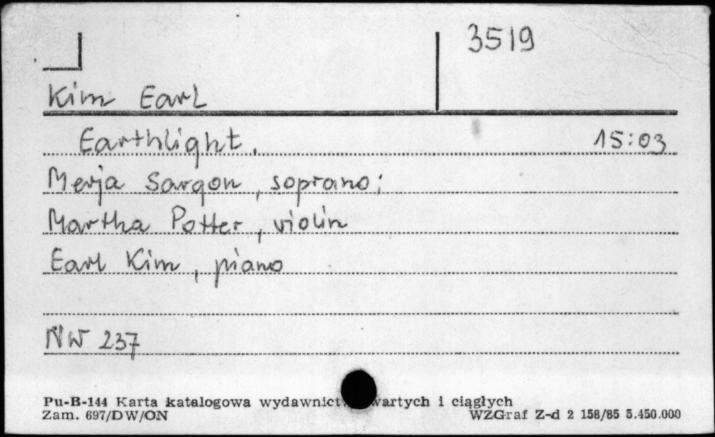 3519
Kim Earl
Earthlight. 15:03
Merja Sargon, soprano;
Martha Potter, violin
Earl Kim, piano
NW 237
Pu-B-144 Karta katalogowa wydawnict wartych i ciągłych
Zam. 697/DW/ON WZGraf Z-d 2 158/85 5.450.000